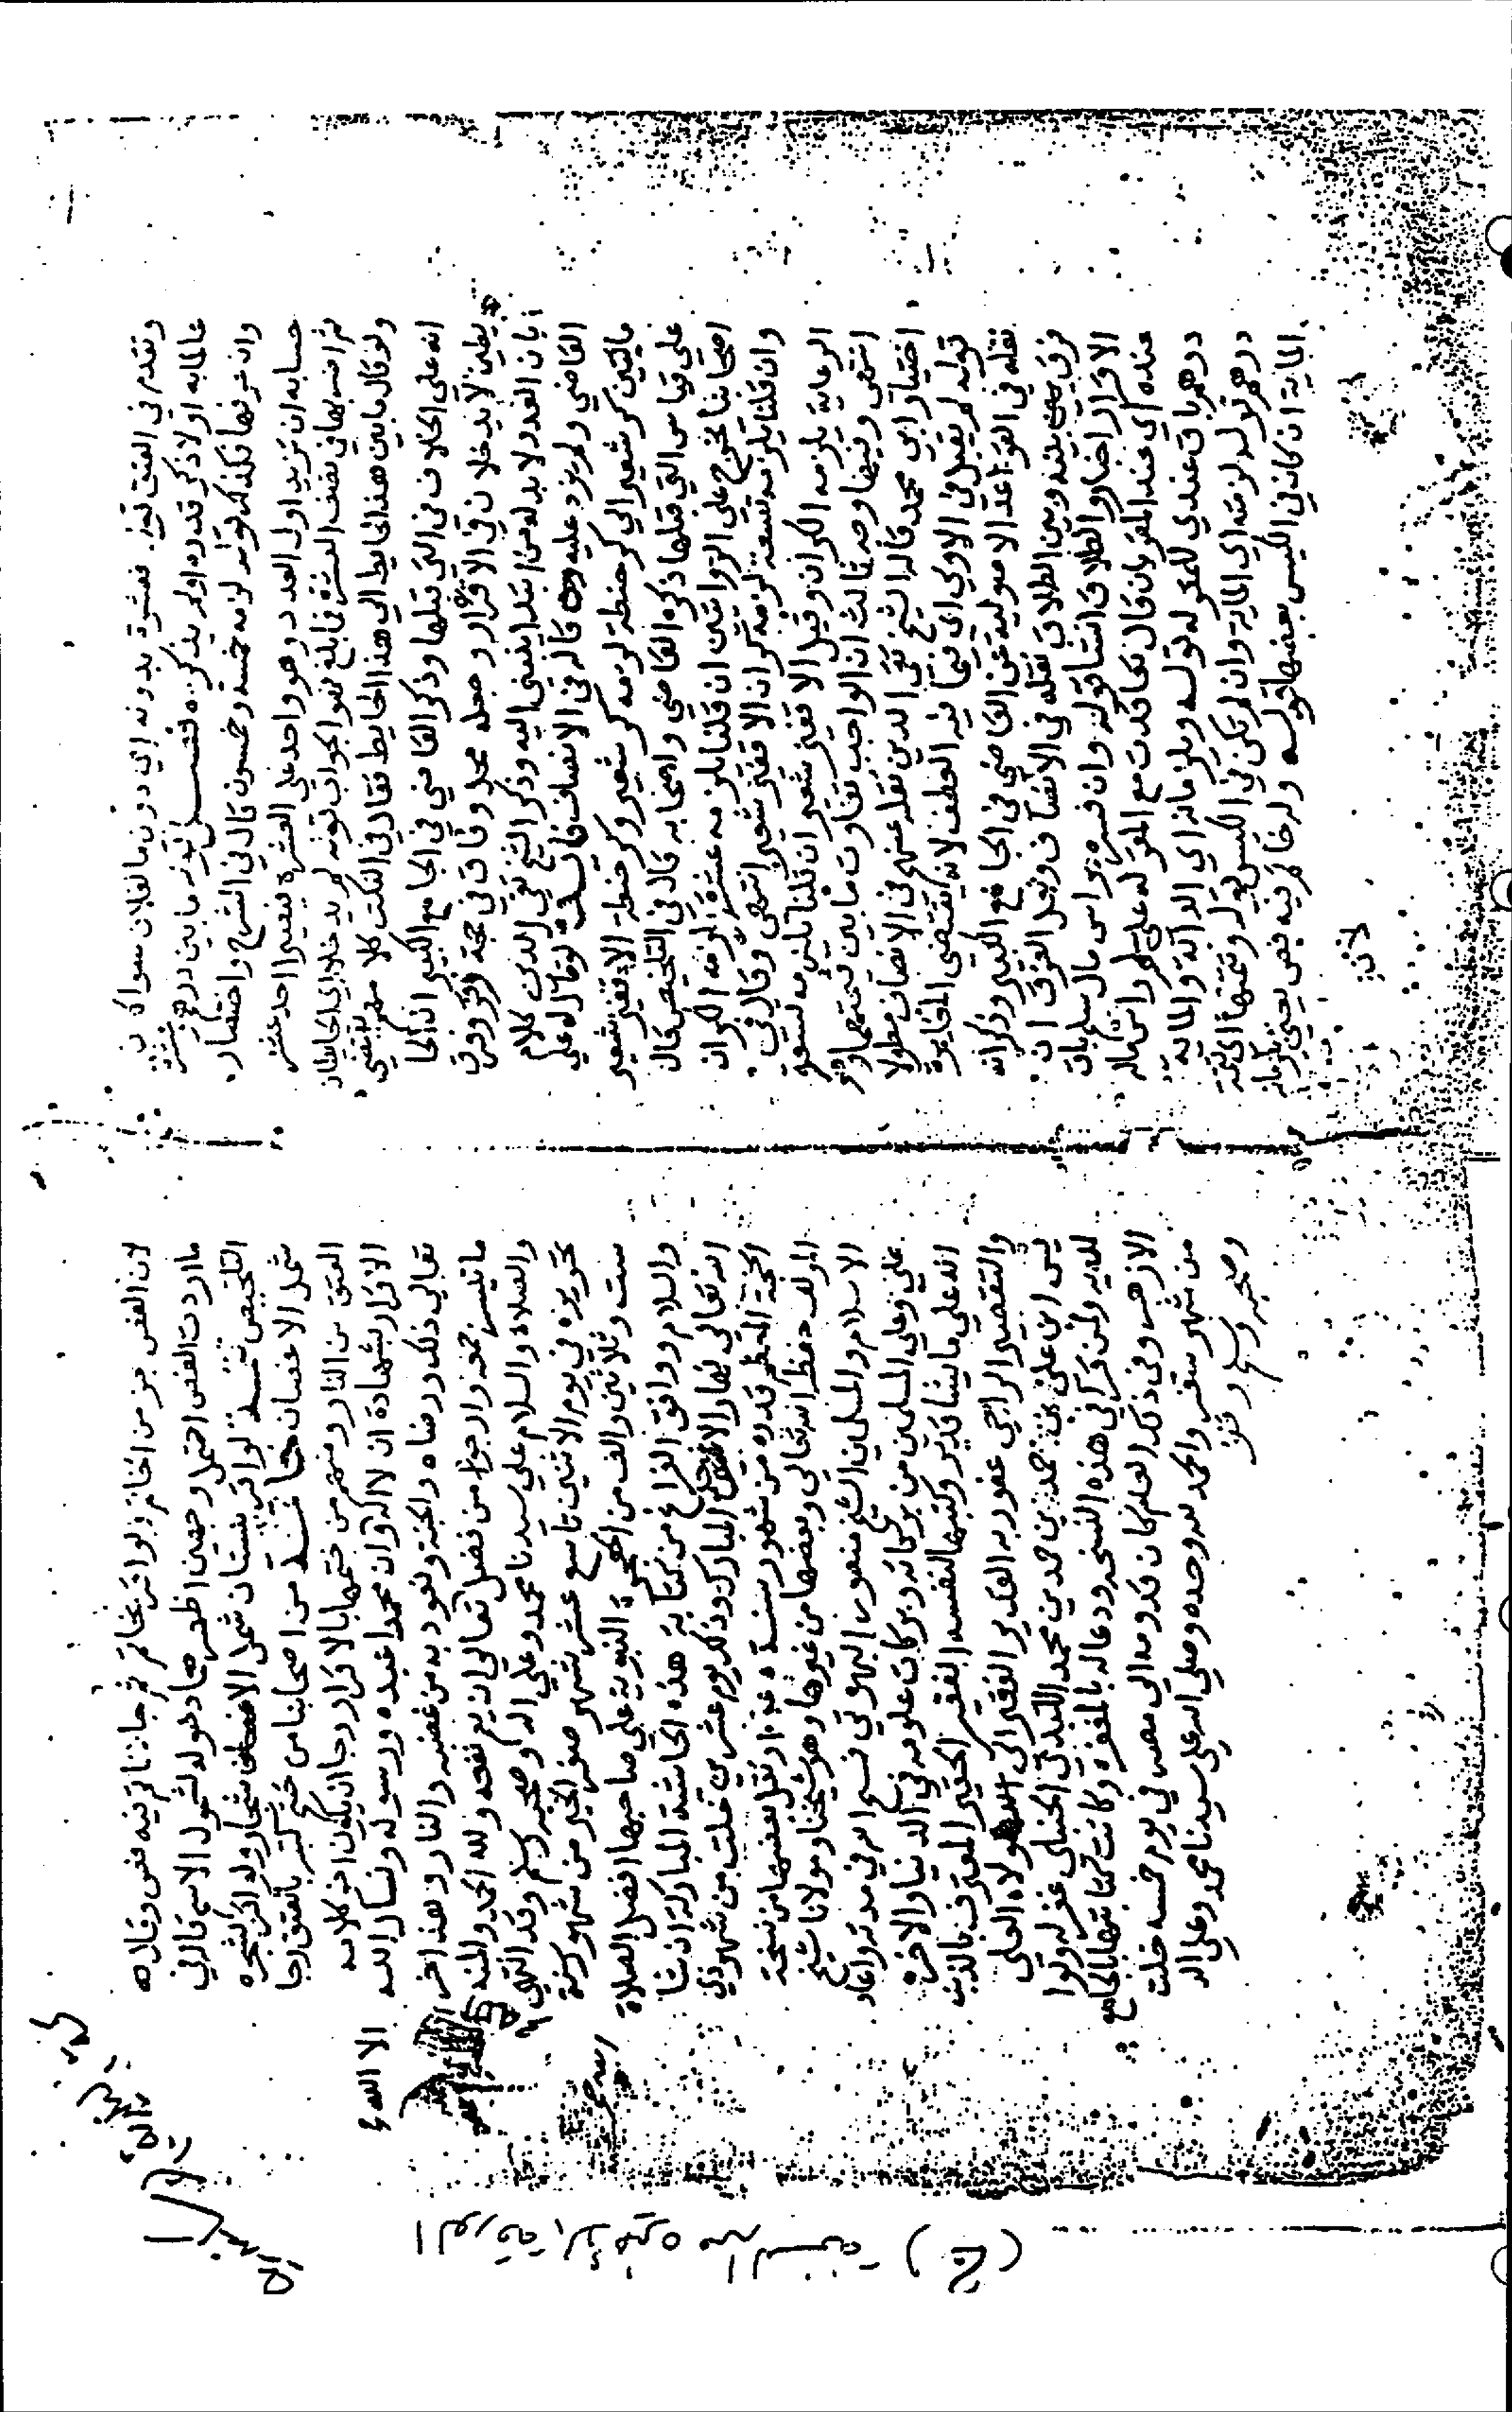 وتقدم في العتق قوله فعشرة بدونه اي دون ما لفلان سواء كان
عالما به اولا ذكر قدره او لم يذكره فتنبه قوله ما بين درهم وعشرة
وان عرفها فكذلك قوله لزمه خمسة وخمسون قال في الشرح واختصار
حسابه ان تزيد اول العدد وهو واحد على العشرة فيصير احد عشر
ثم اضربها في نصف العشرة فما بلغ فهو الجواب قوله لم يدخلا اي الحايطان
ولو قال ما بين هذا الحايط الي هذا الحايط فقال في النكت كلامهم يقتضي
انه على الخلاف في التي قبلها وذكر القاضي في الجامع الكبير ان الحا
يطين لا يدخلان في الاقرار وجعله محل وفاق في حجة زفر وفرق
بان العدد لا بد له من ابتداء ينبني عليه وذكر الشيخ تقي الدين كلام
القاضي ولم يزد عليه قاله في الانصاف فايدة لو قال له علي
ما بين كر شعير الي كر حنطة لزمه كر شعير وكر حنطة الا قفيز شعير
على قياس التي قبلها ذكره القاضي واصحابه قال في التلخيص قال
اصحابنا يخرج على الروايتين ان قلنا يلزمه عشرة لزمه الكران
وان قلنا يلزمه تسعة لزمه كران الا قفيز شعير انتهى وقال في
الرعاية يلزمه الكران وقيل الا قفيز شعير ان قلنا يلزمه تسعة
انتهى وفيها وجه ثالث ان الواجب تفاوت ما بين قيمتهما وهو
اختيار ابي محمد قاله الشيخ تقي الدين نقله عنهم في الانصاف مطولا
قوله لم يقبل في الاولى اي فيما فيه العطف لانه يقتضي المغايرة
نقله في القواعد الاصولية عن القاضي في الجامع الكبير وذكر انه
فرق بينه وبين الطلاق نقله في الانصاف ولعل الفرق ان
الاقرار اخبار والطلاق انشاء قوله وان فسره براس مال سلم باق
عنده اي عند المقر بان قال تعاقدت مع المقر له على سلم راس ماله
درهم باق عندي للمقر له قوله ويلزمانه اي الدابة والماية
درهم قوله لزمته اي الماية وان لم تكن في الكيس قوله وتتمتها اي تتمة
الماية ان كان في الكيس بعضها قوله وله خاتم فيه فص يعني يلزمانه
لان
لان الفص جزء من الخاتم ولو اقر بخاتم ثم جاء بخاتم فيه فص وقال
ما اردت الفص احتمل وجهين اظهرهما دخوله لشمول الاسم قال في
التلخيص تنبيه لو اقر ببستان شمل الاشجار ولو اقر بشجرة
شمل الاغصان خاتمة من اصحابنا من ختم كتبه بالعتق رجا
العتق من النار ومنهم من ختمها بالاقرار رجا ان يكون اخر كلامه
الاقرار بشهادة ان لا اله وان محمدا عبده ورسوله ونسال الله
الا الله
تعالى ذلك ورضاه والجنة ونعوذ به من غضبه والنار وهذا اخر
ما تيسر جمعه وارجوا من فضل تعالى ان يعم نفعه ولله الحمد والمنه
والصلاة والسلام على سيدنا محمد وعلى اله وصحبه وسلم وقد انتهى
تحريره في يوم الاثنين تاسع عشر شهر صفر الخير من شهور سنة
ست وثلاثين والف من الهجرة النبوية على صاحبها افضل الصلاة
والسلام ووافق الفراغ من كتابة هذه الحاشية المباركة ان شا
الله تعالى نهار الاحد المبارك وذلك يوم عشرين خلت من شهر ذي
الحجة المعظم قدره من شهور سنة نقل بعضها من نسخة
المولف حفظه الله تعالى وبعضها من غيرها وهو شيخنا ومولانا شيخ
الاسلام والمسلمين الشيخ منصور البهوتي فسح الله في مدته واعاد
علي وعلى المسلمين من بركاته وبركات علومه في الدنيا والاخرة
انه على ما يشا قدير وكتبها لنفسه الفقير الحقير المعترف بالذنب
والتقصير الراجي عفو ربه القدير الفقير الى الله مولاه العلي
يس ابن علي بن احمد بن احمد بن محمد اللبدي الحنبلي غفر له ولوا
لديه ولمن قرا في هذه النسخه ودعا له بالمغفرة وكانت كتابتها بالجامع
الازهر وفي ذلك العام كان قدومه الي مصر في يوم خمسه خلت
من شهر صفر والحمد لله وحده وصلى الله على سيدنا محمد وعلى اله
وصحبه وسلم